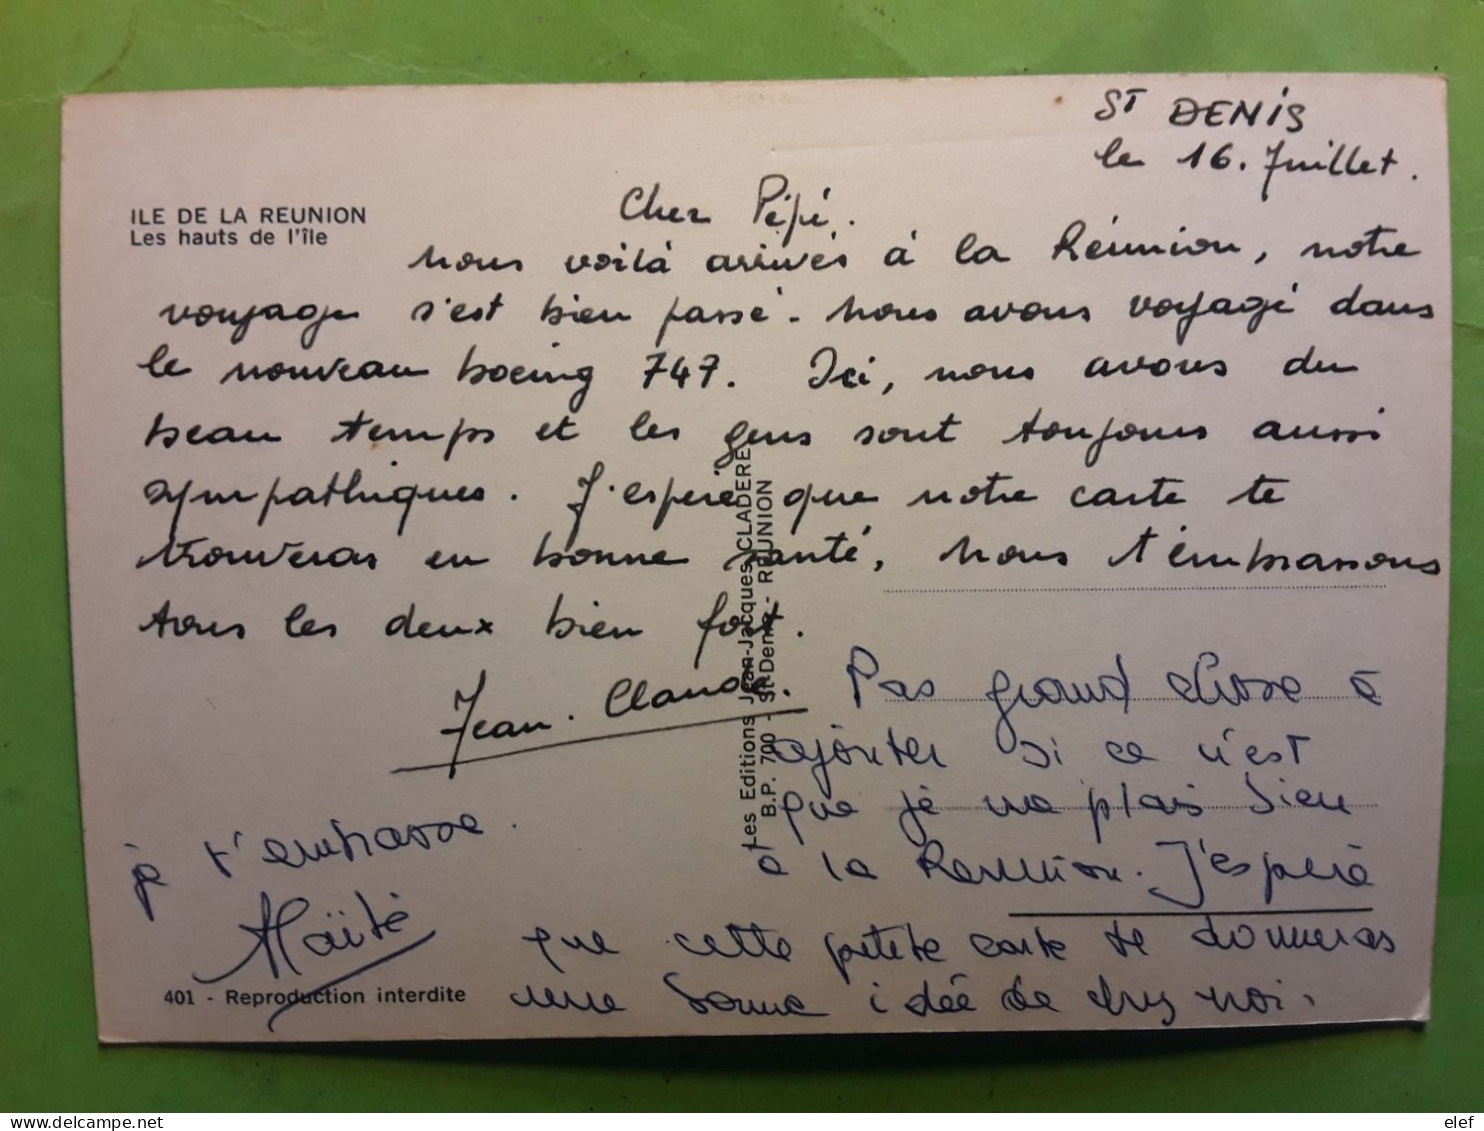 ST DENIS
le 16. Juillet.
ILE DE LA REUNION
Les hauts de l'île
Cher Pépé.
nous voilà arrivés à la Réunion, notre
voyage s'est bien passé. nous avons voyagé dans
le nouveau boeing 747. Ici, nous avons du
beau temps et les gens sont toujours aussi
sympathiques. J'espère que notre carte te
trouveras en bonne santé, nous t'embrassons
tous les deux bien fort.
Jean-Claude.
Les Editions Jean-Jacques CLADERE
B.P. 700 - St-Denis - REUNION
Pas grand chose à
ajouter si ce n'est
que je me plais bien
à la Reunion. J'espère
que cette petite carte te donneras
une bonne idée de chez moi.
je t'embrasse.
Maïté
401 - Reproduction interdite
elef
delcampe.net